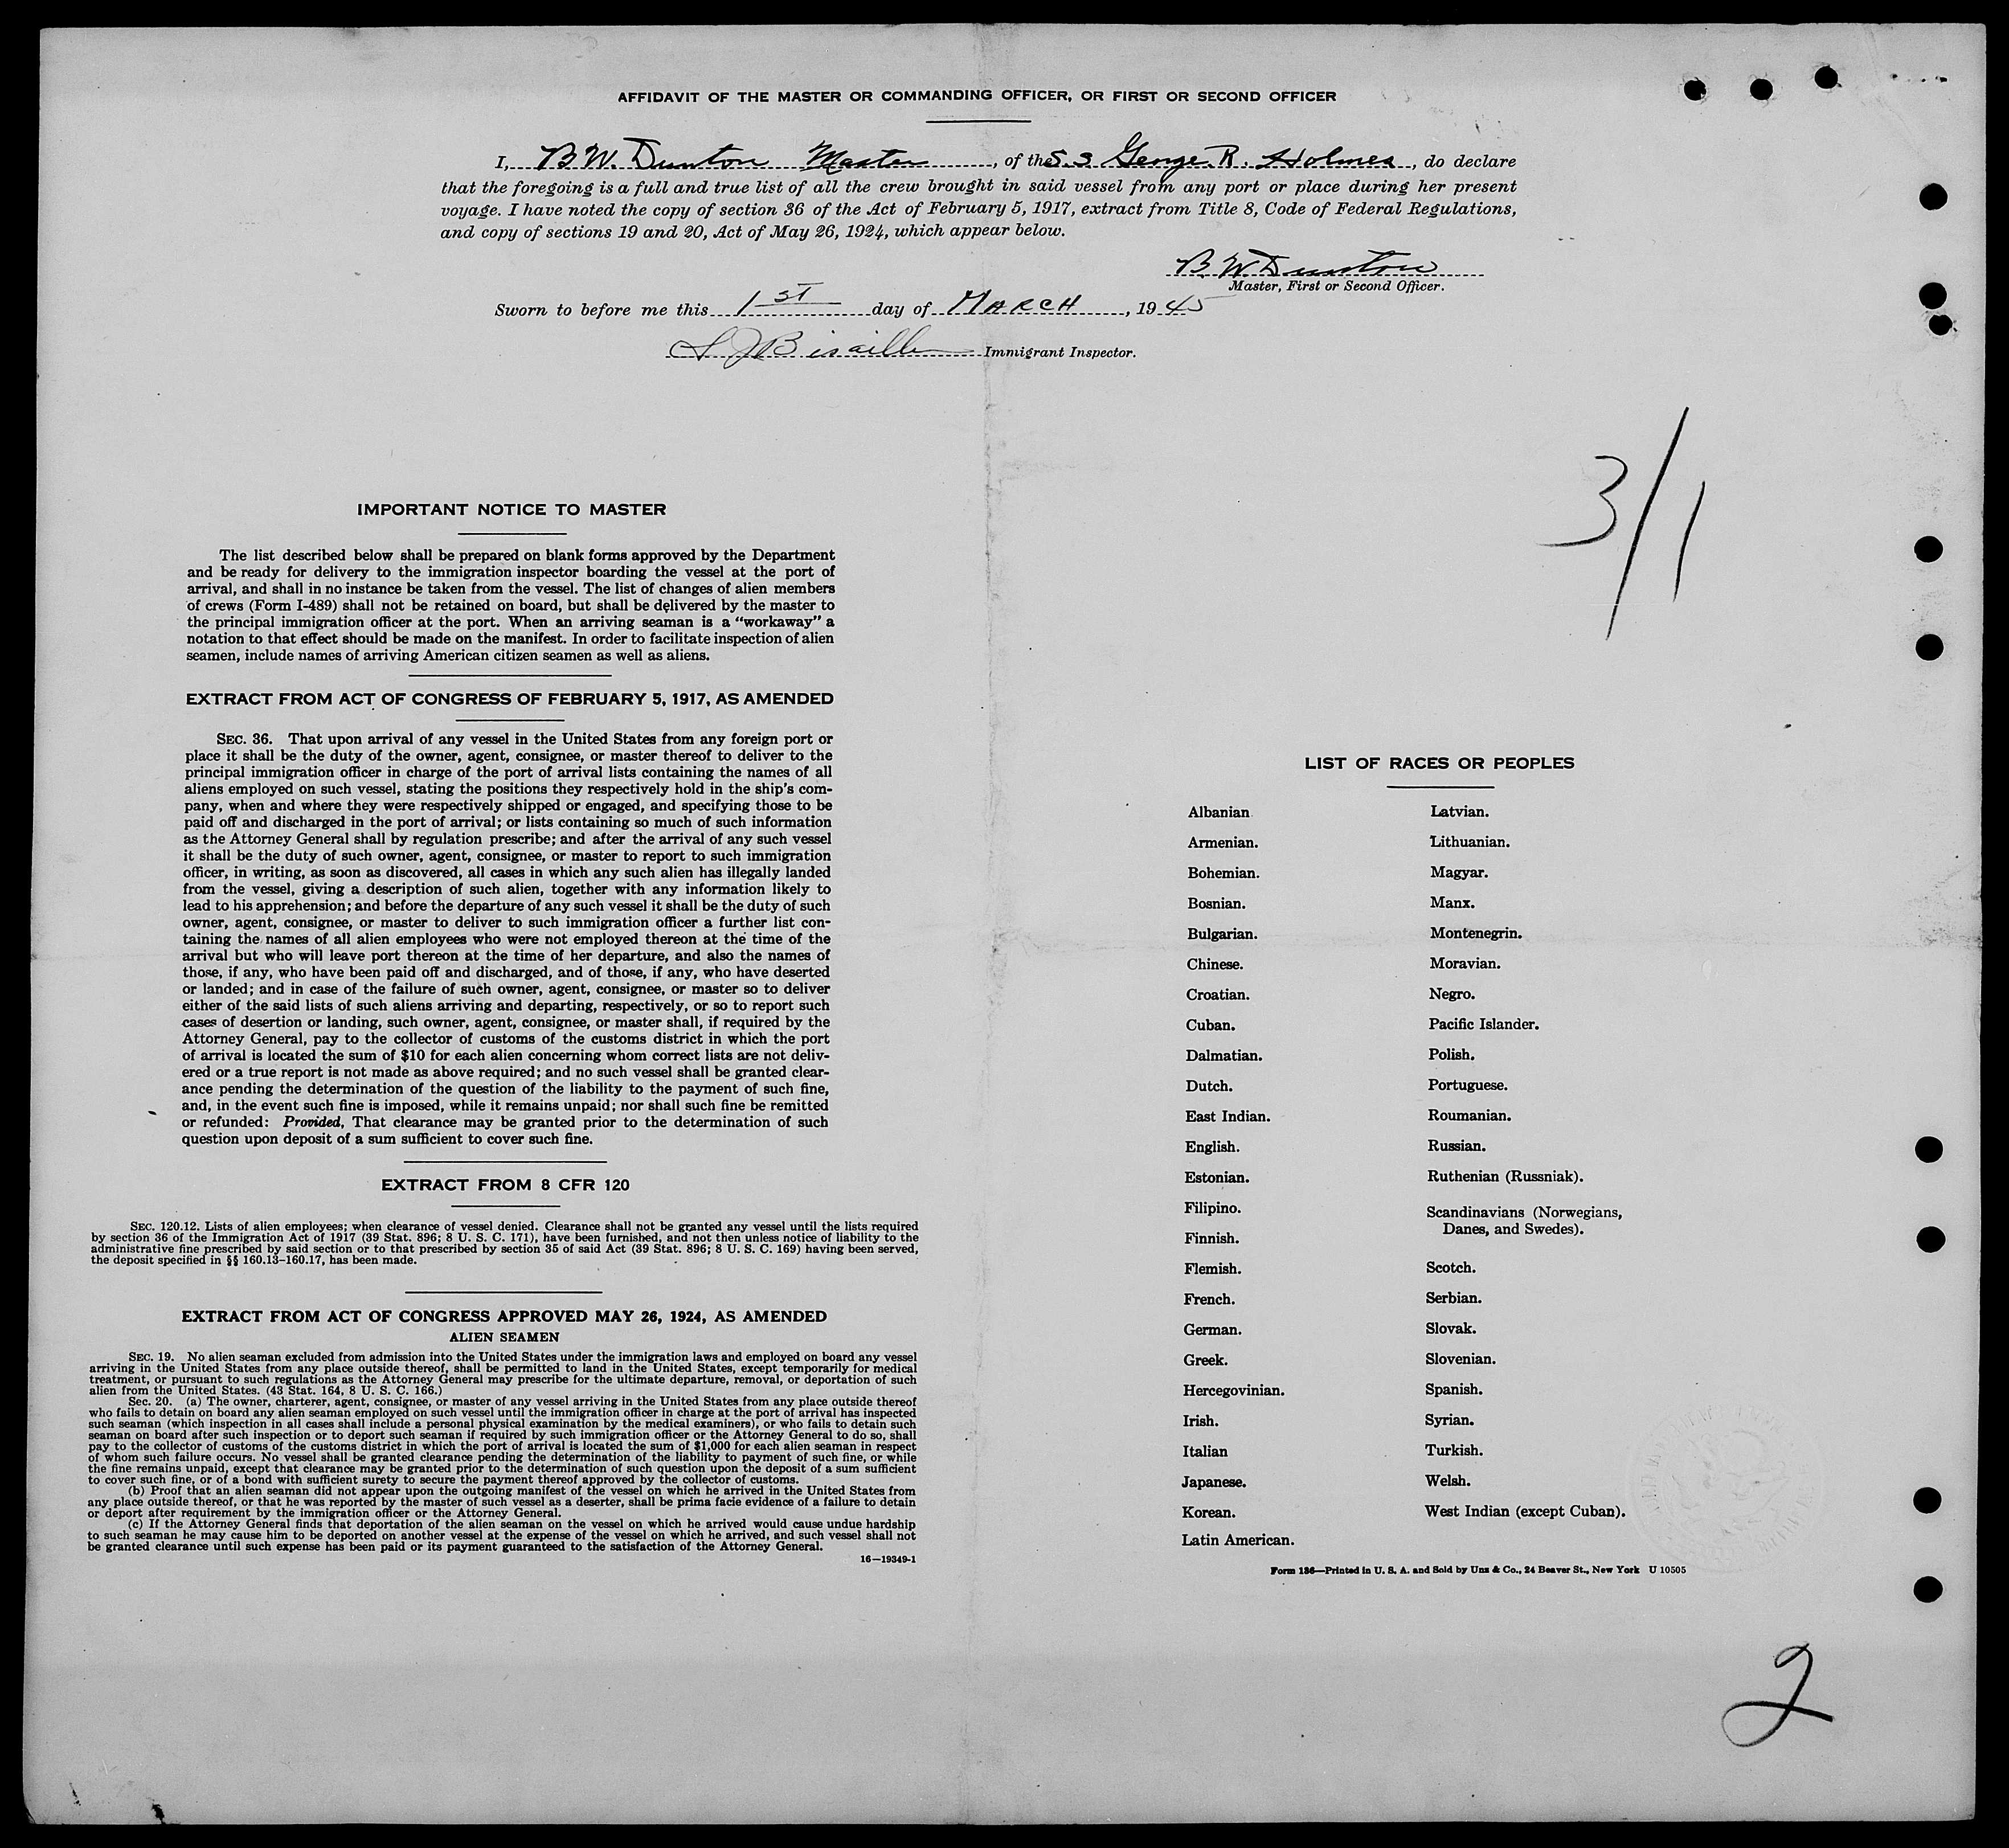 AFFIDAVIT OF THE MASTER OR COMMANDING OFFICER, OR FIRST OR SECOND OFFICER
I, B W. Dunton Master, of the S.S George R. Holmes, do declare
that the foregoing is a full and true list of all the crew brought in said vessel from any port or place during her present
voyage. I have noted the copy of section 36 of the Act of February 5, 1917, extract from Title 8, Code of Federal Regulations,
and copy of sections 19 and 20, Act of May 26, 1924, which appear below.
B. W. Dunton
Master, First or Second Officer.
Sworn to before me this 1ST day of MARCH, 1945
Immigrant Inspector.
3/1
IMPORTANT NOTICE TO MASTER
The list described below shall be prepared on blank forms approved by the Department
and be ready for delivery to the immigration inspector boarding the vessel at the port of
arrival, and shall in no instance be taken from the vessel. The list of changes of alien members
of crews (Form I-489) shall not be retained on board, but shall be delivered by the master to
the principal immigration officer at the port. When an arriving seaman is a "workaway" a
notation to that effect should be made on the manifest. In order to facilitate inspection of alien
seamen, include names of arriving American citizen seamen as well as aliens.
EXTRACT FROM ACT OF CONGRESS OF FEBRUARY 5, 1917, AS AMENDED
SEC. 36. That upon arrival of any vessel in the United States from any foreign port or
place it shall be the duty of the owner, agent, consignee, or master thereof to deliver to the
principal immigration officer in charge of the port of arrival lists containing the names of all
aliens employed on such vessel, stating the positions they respectively hold in the ship's com-
pany, when and where they were respectively shipped or engaged, and specifying those to be
paid off and discharged in the port of arrival; or lists containing so much of such information
as the Attorney General shall by regulation prescribe; and after the arrival of any such vessel
it shall be the duty of such owner, agent, consignee, or master to report to such immigration
officer, in writing, as soon as discovered, all cases in which any such alien has illegally landed
from the vessel, giving a description of such alien, together with any information likely to
lead to his apprehension; and before the departure of any such vessel it shall be the duty of such
owner, agent, consignee, or master to deliver to such immigration officer a further list con-
taining the names of all alien employees who were not employed thereon at the time of the
arrival but who will leave port thereon at the time of her departure, and also the names of
those, if any, who have been paid off and discharged, and of those, if any, who have deserted
or landed; and in case of the failure of such owner, agent, consignee, or master so to deliver
either of the said lists of such aliens arriving and departing, respectively, or so to report such
cases of desertion or landing, such owner, agent, consignee, or master shall, if required by the
Attorney General, pay to the collector of customs of the customs district in which the port
of arrival is located the sum of $10 for each alien concerning whom correct lists are not deliv-
ered or a true report is not made as above required; and no such vessel shall be granted clear-
ance pending the determination of the question of the liability to the payment of such fine,
and, in the event such fine is imposed, while it remains unpaid; nor shall such fine be remitted
or refunded: Provided, That clearance may be granted prior to the determination of such
question upon deposit of a sum sufficient to cover such fine.
EXTRACT FROM 8 CFR 120
SEC. 120.12. Lists of alien employees; when clearance of vessel denied. Clearance shall not be granted any vessel until the lists required
by section 36 of the Immigration Act of 1917 (39 Stat. 896; 8 U. S. C. 171), have been furnished, and not then unless notice of liability to the
administrative fine prescribed by said section or to that prescribed by section 35 of said Act (39 Stat. 896; 8 U. S. C. 169) having been served,
the deposit specified in §§ 160.13–160.17, has been made.
EXTRACT FROM ACT OF CONGRESS APPROVED MAY 26, 1924, AS AMENDED
ALIEN SEAMEN
SEC. 19. No alien seaman excluded from admission into the United States under the immigration laws and employed on board any vessel
arriving in the United States from any place outside thereof, shall be permitted to land in the United States, except temporarily for medical
treatment, or pursuant to such regulations as the Attorney General may prescribe for the ultimate departure, removal, or deportation of such
alien from the United States. (43 Stat. 164, 8 U. S. C. 166.)
Sec. 20. (a) The owner, charterer, agent, consignee, or master of any vessel arriving in the United States from any place outside thereof
who fails to detain on board any alien seaman employed on such vessel until the immigration officer in charge at the port of arrival has inspected
such seaman (which inspection in all cases shall include a personal physical examination by the medical examiners), or who fails to detain such
seaman on board after such inspection or to deport such seaman if required by such immigration officer or the Attorney General to do so, shall
pay to the collector of customs of the customs district in which the port of arrival is located the sum of $1,000 for each alien seaman in respect
of whom such failure occurs. No vessel shall be granted clearance pending the determination of the liability to payment of such fine, or while
the fine remains unpaid, except that clearance may be granted prior to the determination of such question upon the deposit of a sum sufficient
to cover such fine, or of a bond with sufficient surety to secure the payment thereof approved by the collector of customs.
(b) Proof that an alien seaman did not appear upon the outgoing manifest of the vessel on which he arrived in the United States from
any place outside thereof, or that he was reported by the master of such vessel as a deserter, shall be prima facie evidence of a failure to detain
or deport after requirement by the immigration officer or the Attorney General.
(c) If the Attorney General finds that deportation of the alien seaman on the vessel on which he arrived would cause undue hardship
to such seaman he may cause him to be deported on another vessel at the expense of the vessel on which he arrived, and such vessel shall not
be granted clearance until such expense has been paid or its payment guaranteed to the satisfaction of the Attorney General.
16—19349-1
LIST OF RACES OR PEOPLES
Albanian
Armenian.
Bohemian.
Bosnian.
Bulgarian.
Chinese.
Croatian.
Cuban.
Dalmatian.
Dutch.
East Indian.
English.
Estonian.
Filipino.
Finnish.
Flemish.
French.
German.
Greek.
Hercegovinian.
Irish.
Italian
Japanese.
Korean.
Latin American.
Latvian.
Lithuanian.
Magyar.
Manx.
Montenegrin.
Moravian.
Negro.
Pacific Islander.
Polish.
Portuguese.
Roumanian.
Russian.
Ruthenian (Russniak).
Scandinavians (Norwegians,
Danes, and Swedes).
Scotch.
Serbian.
Slovak.
Slovenian.
Spanish.
Syrian.
Turkish.
Welsh.
West Indian (except Cuban).
Form 186—Printed in U. S. A. and Sold by Unz & Co., 24 Beaver St., New York U 10505
2